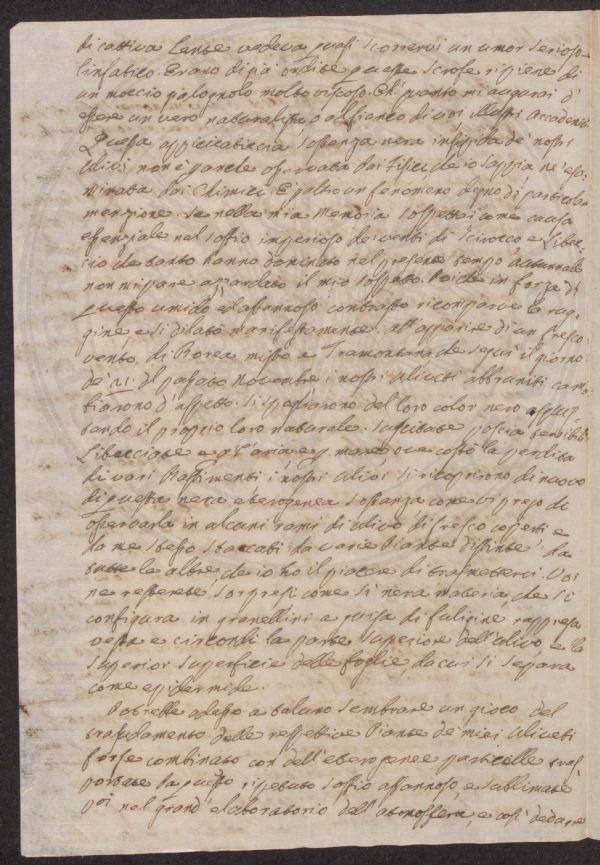 di cattiva Lente vedeva quasi scorrervi un umor sieroso-
linfatico. Erano di più ordite queste scrofe ripiene di
un moccio gialognolo molto viscoso. Eh! quanto mi augurai d'
essere un vero naturalista o al fianco di voi illustri Accademici
Questa appiccaticcia sostanza nera insipida de' nostri
Ulivi non è parola osservata dai Fisici che io sappia ne' esa-
minata dai Chimici. E' peraltro un fenomeno degno di particolar
menzione. Se nella mia Memoria sospettai come causa
essenziale nel soffio imperioso de' venti di Scirocco e Libec-
cio che tanto hanno dominato nel presente tempo autunnale
non mi pare azzardato il mio sospetto. Poiche in forza di
questo umido, ed affannoso contrasto ricomparve la rug-
gine e si dilatò manifestamente. All'apparire di un fresco
vento di Borea misto a Tramontana che seguì il giorno
de' 21. del passato Novembre i nostri uliveti abbruniti cam-
biarono d'aspetto. Si spogliarono del loro color nero acquis-
tando il proprio loro naturale. Suscitate poscia sensibili
Libecciate e p[er] l'aria e p[er] mare, ove costò la perdita
di vari Bastimenti i nostri ulivi si ricoprirono di nuovo
di questa nera eterogenea sostanza come vi prego di
osservarla in alcuni rami di ulivo di fresco coperti e
da me stesso staccati da varie Piante distinte da
tutte le altre, che io ho il piacere di trasmettervi. Voi
ne resterete sorpresi come si nera materia, che si
configura in granellini a guisa di fuligine rappresa
vesta e circondi la parte superiore dell'ulivo, e la
superior superficie delle foglie, da cui si separa
come epidermide.
Potrebbe adesso a taluno sembrare un gioco del
trasudamento delle respettive Piante de' miei uliveti
forse combinato con dell'eterogenee particelle tras-
portate da questo ripetuto soffio affannoso, e sublimate
poi nel grand'elaboratorio dell'atmosfera, e così dedurre